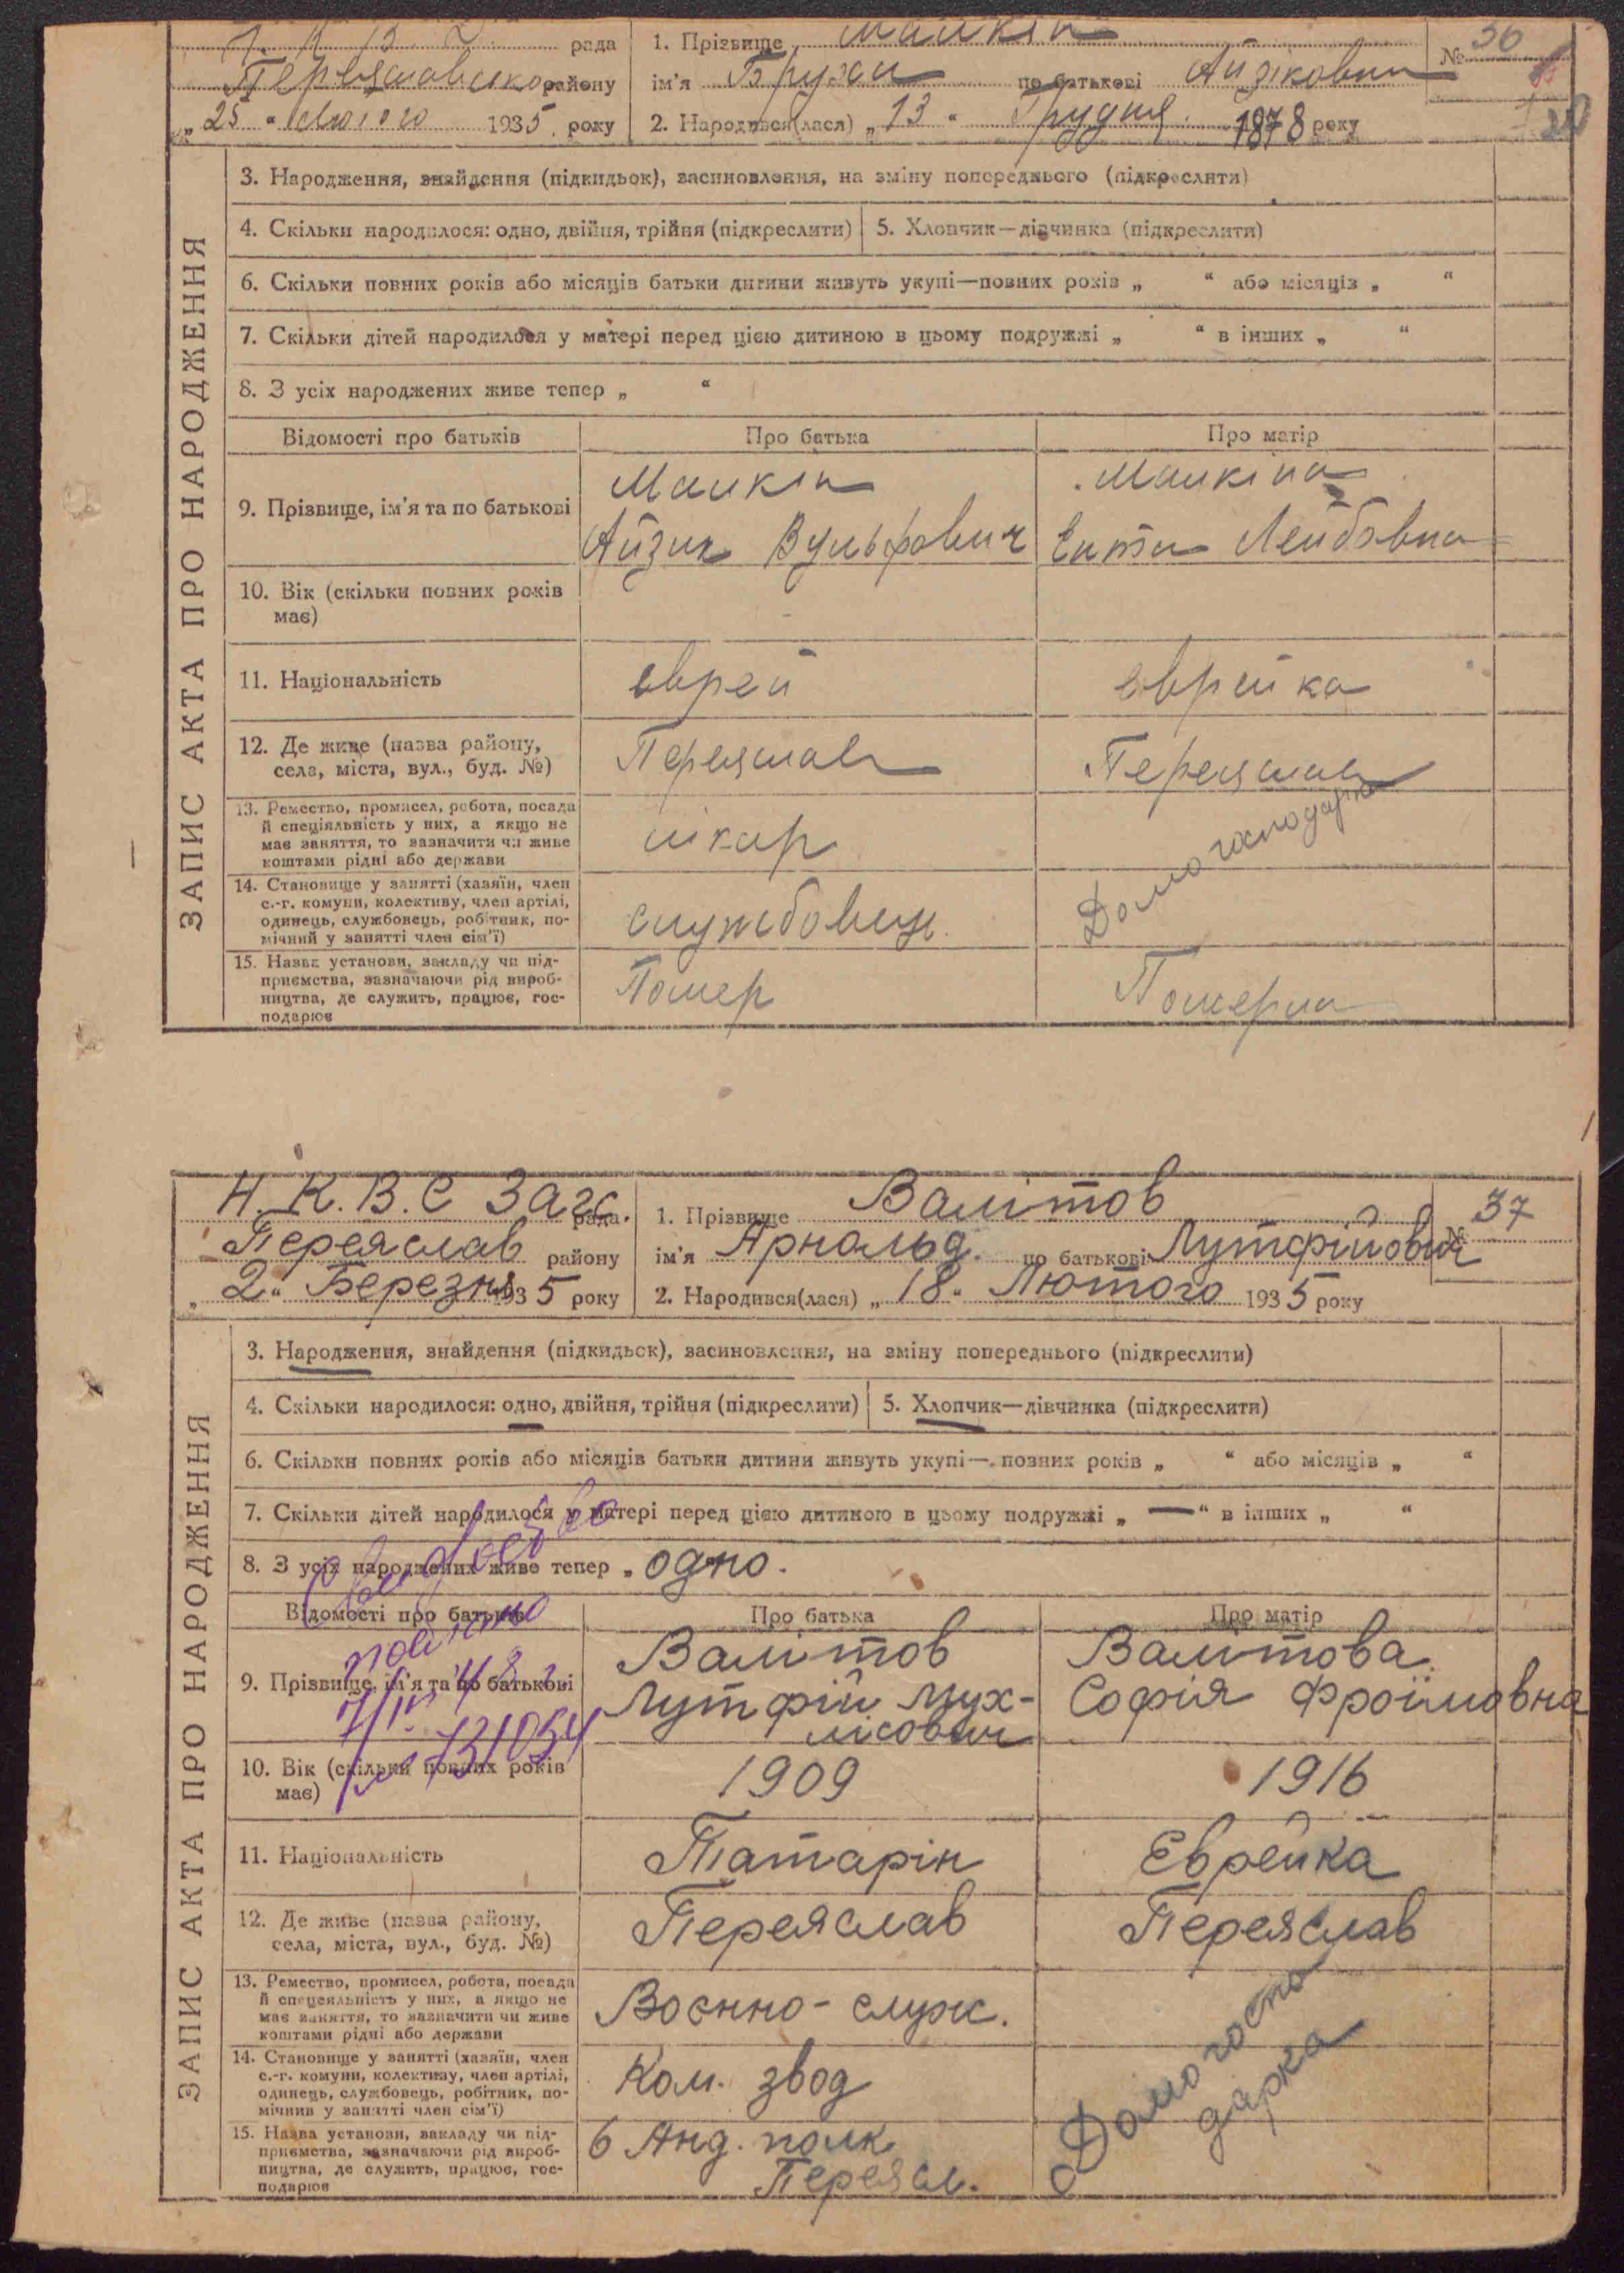 рада
Переяславського району
„25“ Лютого 1935 року
1. Прізвище Малкін
ім'я по батькові
2. Народився(лася) „13“ Грудня 1878 року
№ 36
ЗАПИС АКТА ПРО НАРОДЖЕННЯ
3. Народження, знайдення (підкидьок), засиновлення, на зміну попереднього (підкреслити)
4. Скільки народилося: одно, двійня, трійня (підкреслити) 5. Хлопчик—дівчинка (підкреслити)
6. Скільки повних років або місяців батьки дитини живуть укупі—повних років „ “ або місяців „ “
7. Скільки дітей народилося у матері перед цією дитиною в цьому подружжі „ “ в інших „ “
8. З усіх народжених живе тепер „ “
Відомості про батьків Про батька Про матір
9. Прізвище, ім'я та по батькові
Малкін
Айзик Вульфович
Малкіна
Лейбовна
10. Вік (скільки повних років
має)
11. Національність еврей еврейка
12. Де живе (назва району,
села, міста, вул., буд. №)
Переяслав Переяслав
13. Ремество, промисел, робота, посада
й спеціяльність у них, а якщо не
має заняття, то зазначити чи живе
коштами рідні або держави
Домогосподарка
14. Становище у занятті (хазяїн, член
с.-г. комуни, колективу, член артілі,
одинець, службовець, робітник, по-
мічний у занятті член сім'ї)
службовец
15. Назва установи, закладу чи під-
приємства, зазначаючи рід вироб-
ництва, де служить, працює, гос-
подарює
Помер Померла
Н.К.В.С Загс. рада
Переяслав району
„2“ Березня 1935 року
1. Прізвище Валітов
ім'я Арнольд по батькові Лутфійович
2. Народився(лася) „18“ Лютого 1935 року
№ 37
ЗАПИС АКТА ПРО НАРОДЖЕННЯ
3. Народження, знайдення (підкидьок), засиновлення, на зміну попереднього (підкреслити)
4. Скільки народилося: одно, двійня, трійня (підкреслити) 5. Хлопчик—дівчинка (підкреслити)
6. Скільки повних років або місяців батьки дитини живуть укупі—повних років „ “ або місяців „ “
7. Скільки дітей народилося у матері перед цією дитиною в цьому подружжі „ — “ в інших „ “
8. З усіх народжених живе тепер „одно.
Відомості про батьків Про батька Про матір
9. Прізвище, ім'я та по батькові
Валітов
Лутфій Мух-
лісович
Валітова
Софія Фроїмовна
10. Вік (скільки повних років
має)
1909 1916
11. Національність Татарін Еврейка
12. Де живе (назва району,
села, міста, вул., буд. №)
Переяслав Переяслав
13. Ремество, промисел, робота, посада
й спецеяльність у них, а якщо не
має заняття, то зазначити чи живе
коштами рідні або держави
Воєнно-служ.
Домогоспо
дарка
14. Становище у занятті (хазяїн, член
с.-г. комуни, колективу, член артілі,
одинець, службовець, робітник, по-
мічнив у занятті член сім'ї)
Ком. звод
15. Назва установи, закладу чи під-
приємства, зазначаючи рід вироб-
ництва, де служить, працює, гос-
подарює
6 Анд. полк
Переясл.